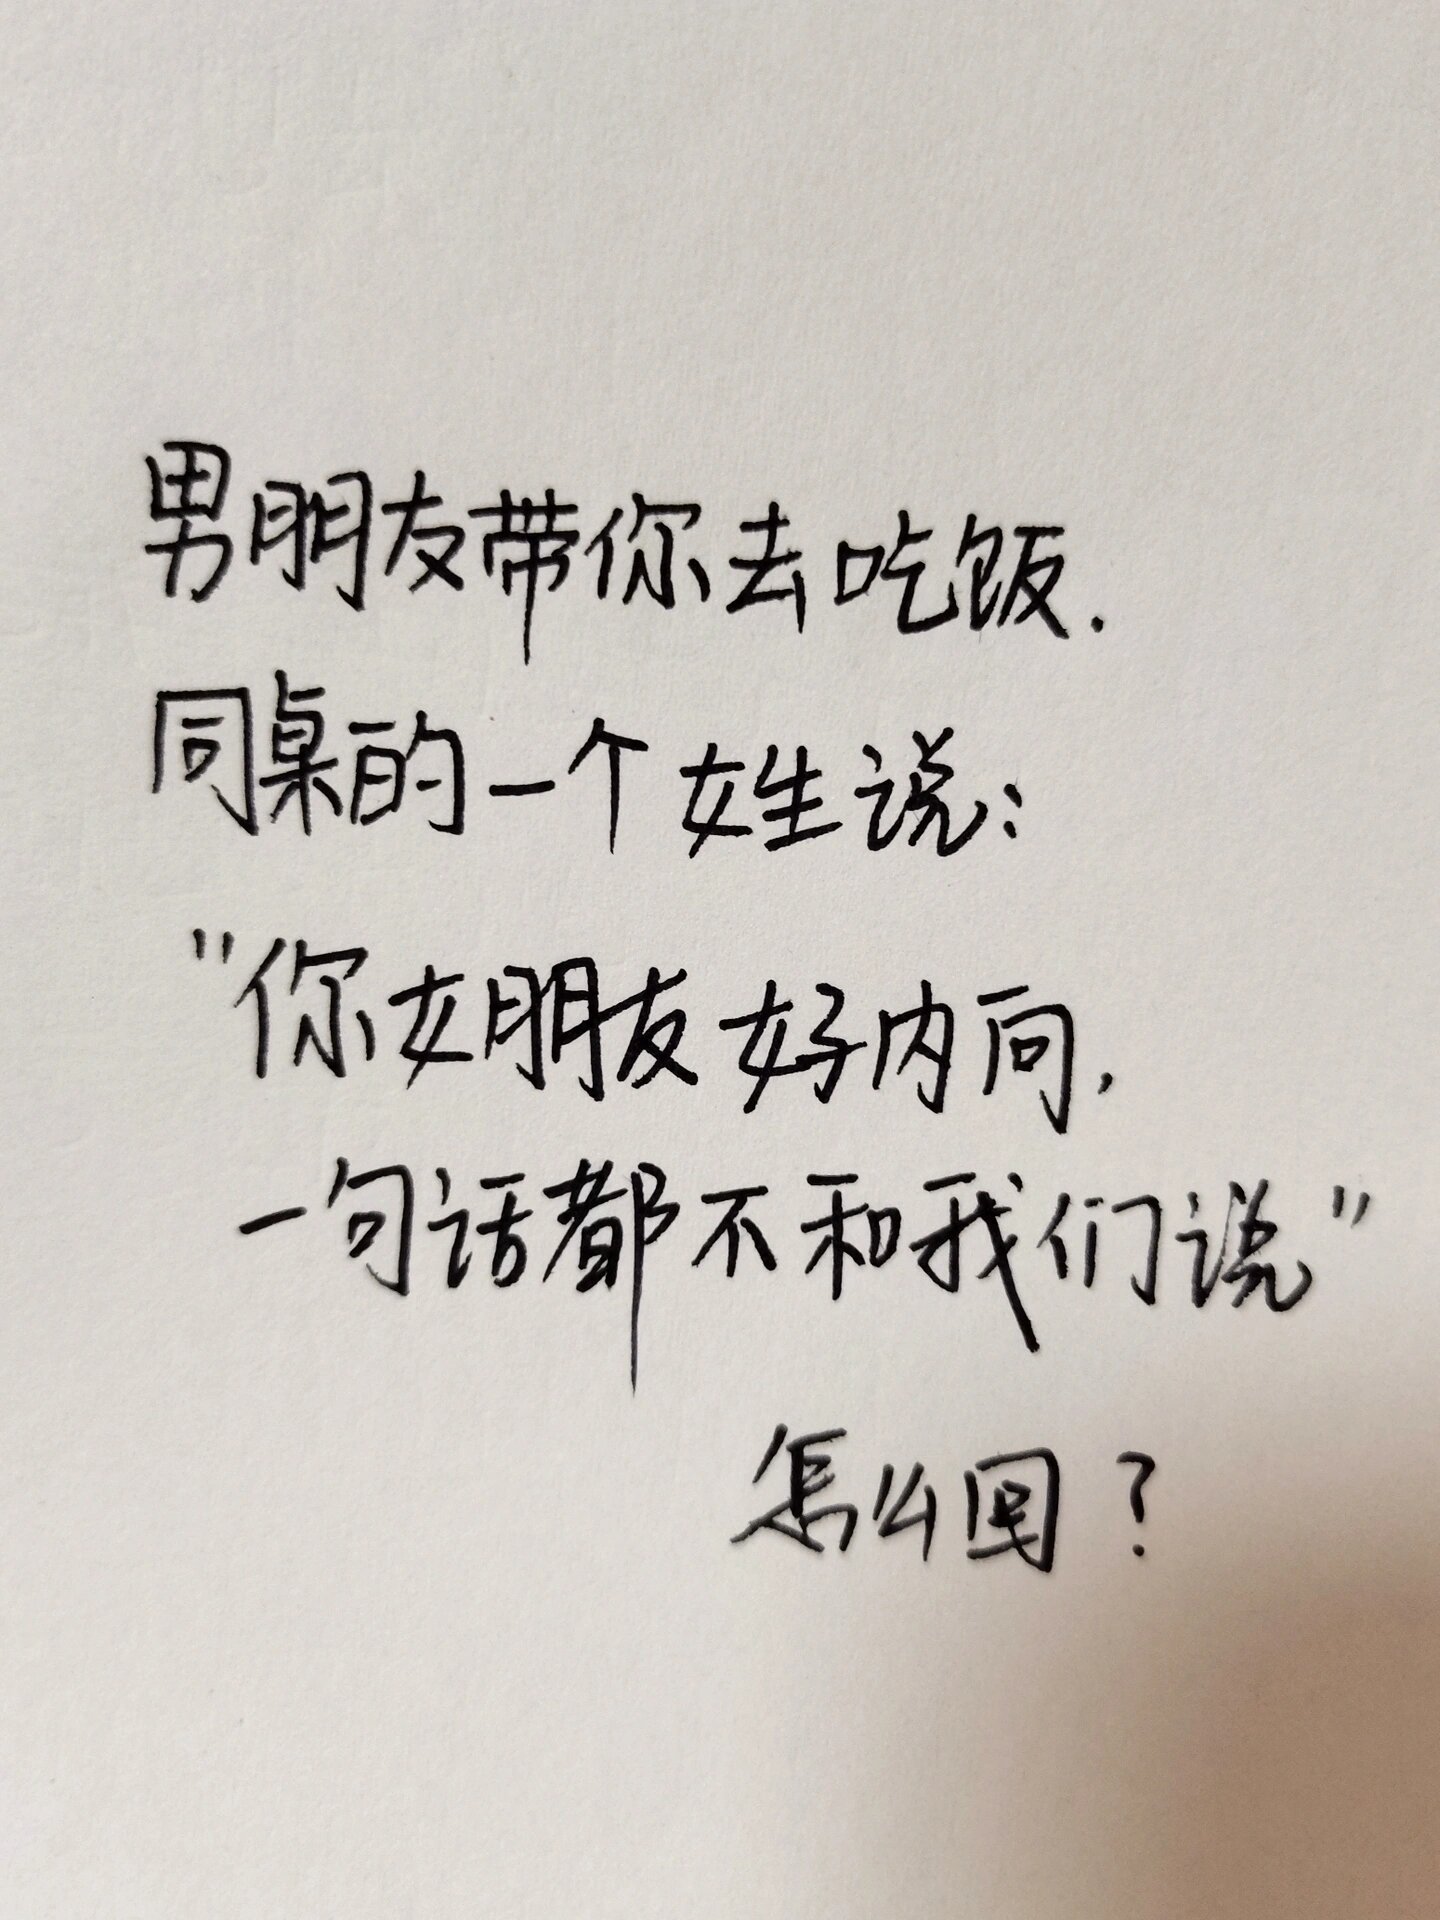 男朋友带你去吃饭.
同桌的一个女生说:
"你女朋友好内向,
一句话都不和我们说"
怎么回?